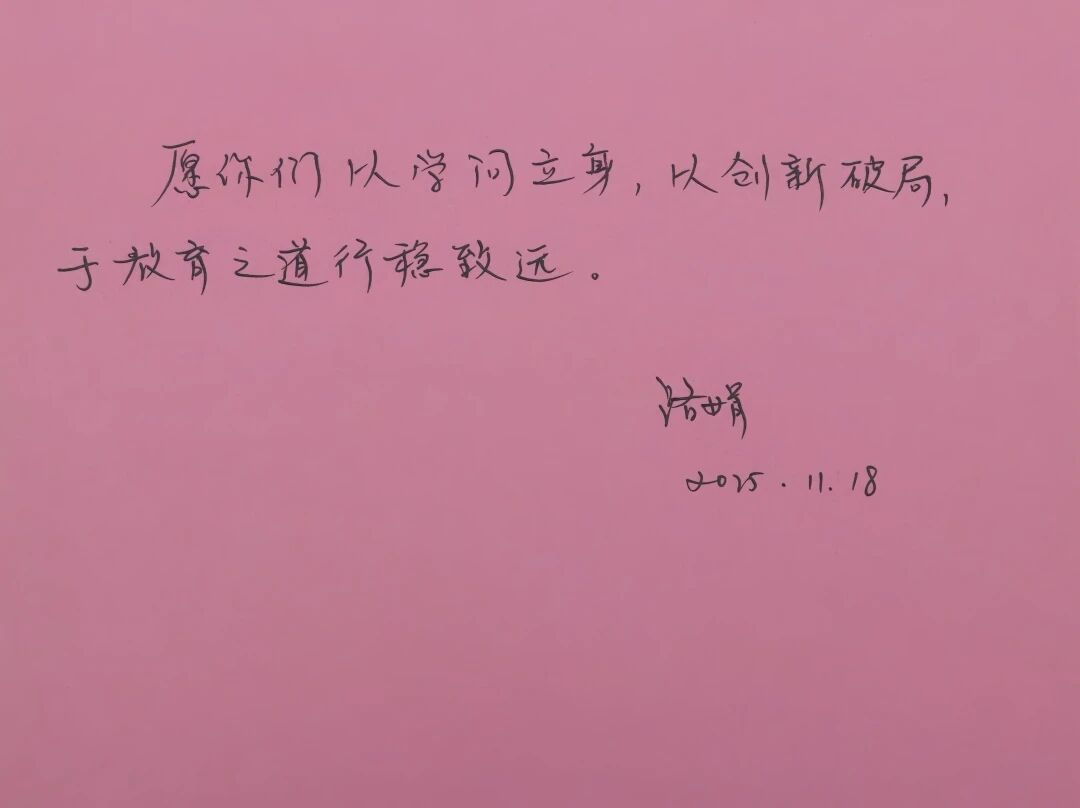 愿你们以学问立身,以创新破局,
于教育之道行稳致远。
2025.11.18